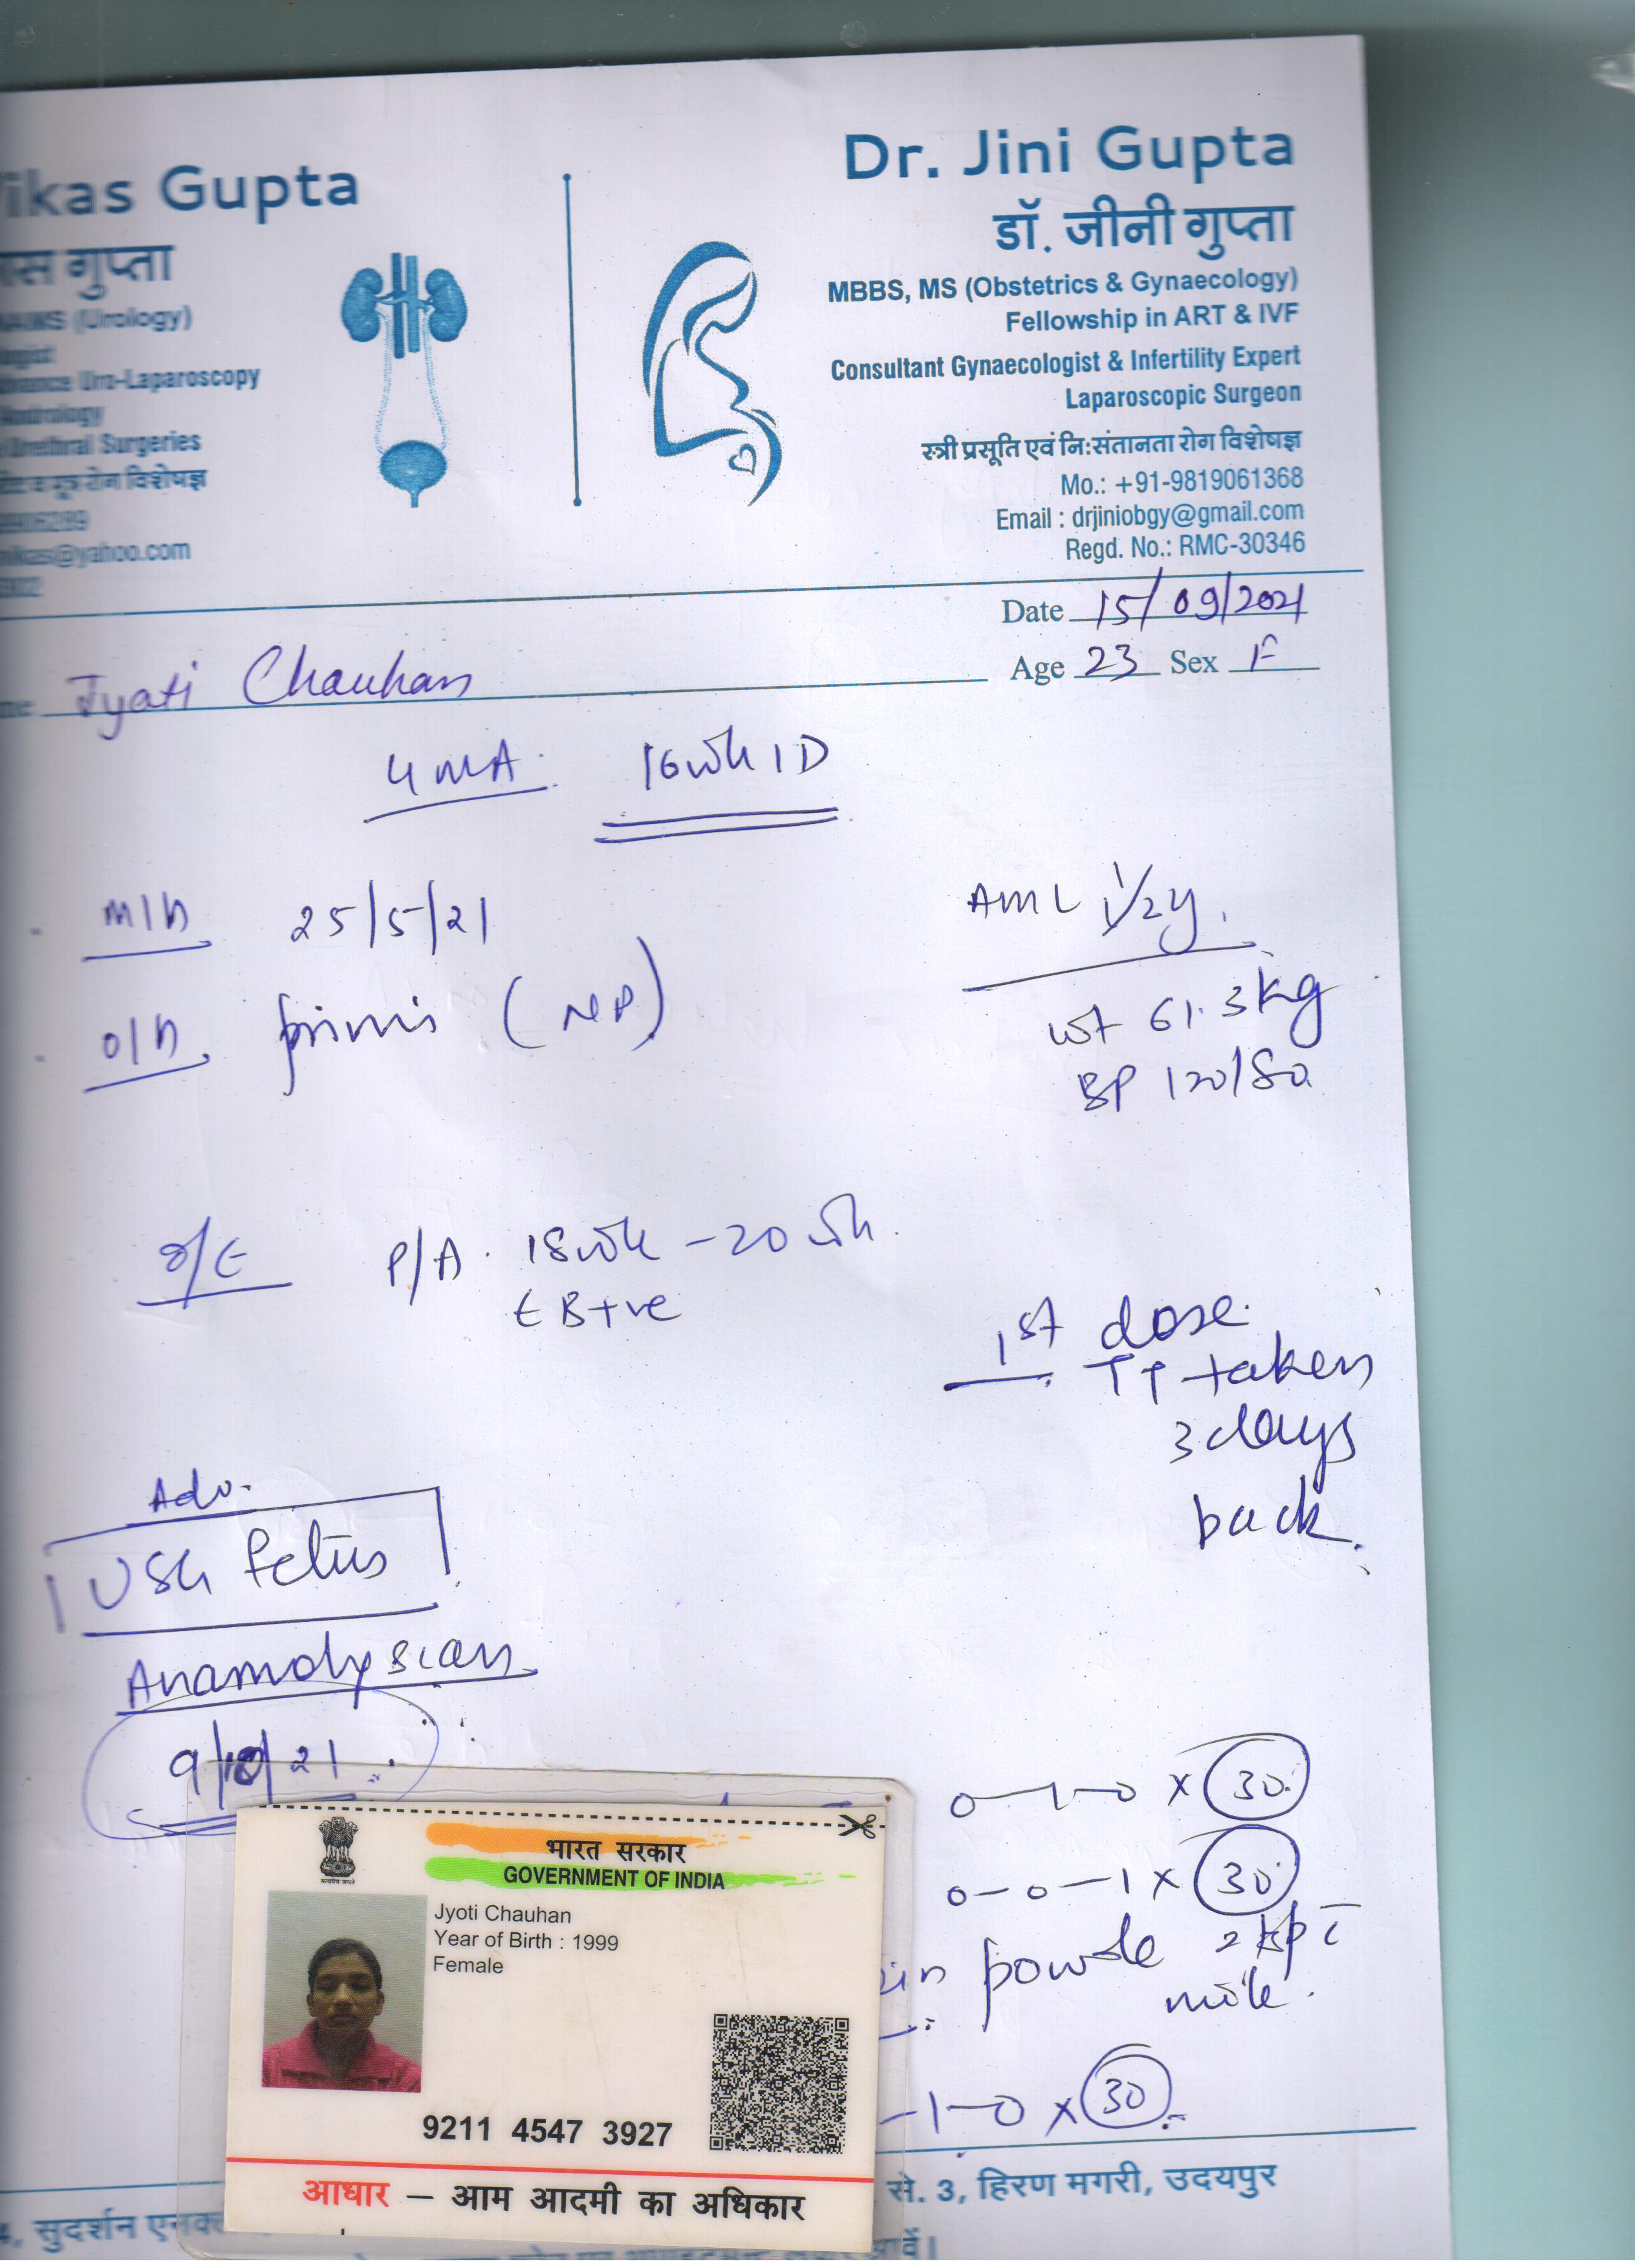 ikas Gupta
गुप्ता
(Urology)
Uro-Laparoscopy
Urethral Surgeries
रोग विशेषज्ञ
@yahoo.com
Dr. Jini Gupta
डॉ. जीनी गुप्ता
MBBS, MS (Obstetrics & Gynaecology)
Fellowship in ART & IVF
Consultant Gynaecologist & Infertility Expert
Laparoscopic Surgeon
स्त्री प्रसूति एवं निःसंतानता रोग विशेषज्ञ
Mo.: +91-9819061368
Email : drjiniobgy@gmail.com
Regd. No.: RMC-30346
Date 15/09/2021
Age 23 Sex F
Jyati Chauhan
4 MA. 16wk 1D
M/h 25/5/21
AML 1 1/2 y.
O/h. primi (NP)
wt 61.3 kg
BP 120/80
O/E P/A. 18wk - 20wk.
EB+ve
1st dose.
TT taken
3 days
back.
Adv.
USG Fetus
Anamoly scan
9/10/21
0-1-0 x 30
0-0-1 x 30
powde 2 tsp c̄
milk.
-1-0 x 30
भारत सरकार
GOVERNMENT OF INDIA
सत्यमेव जयते
Jyoti Chauhan
Year of Birth : 1999
Female
9211 4547 3927
आधार – आम आदमी का अधिकार
से. 3, हिरण मगरी, उदयपुर
सुदर्शन